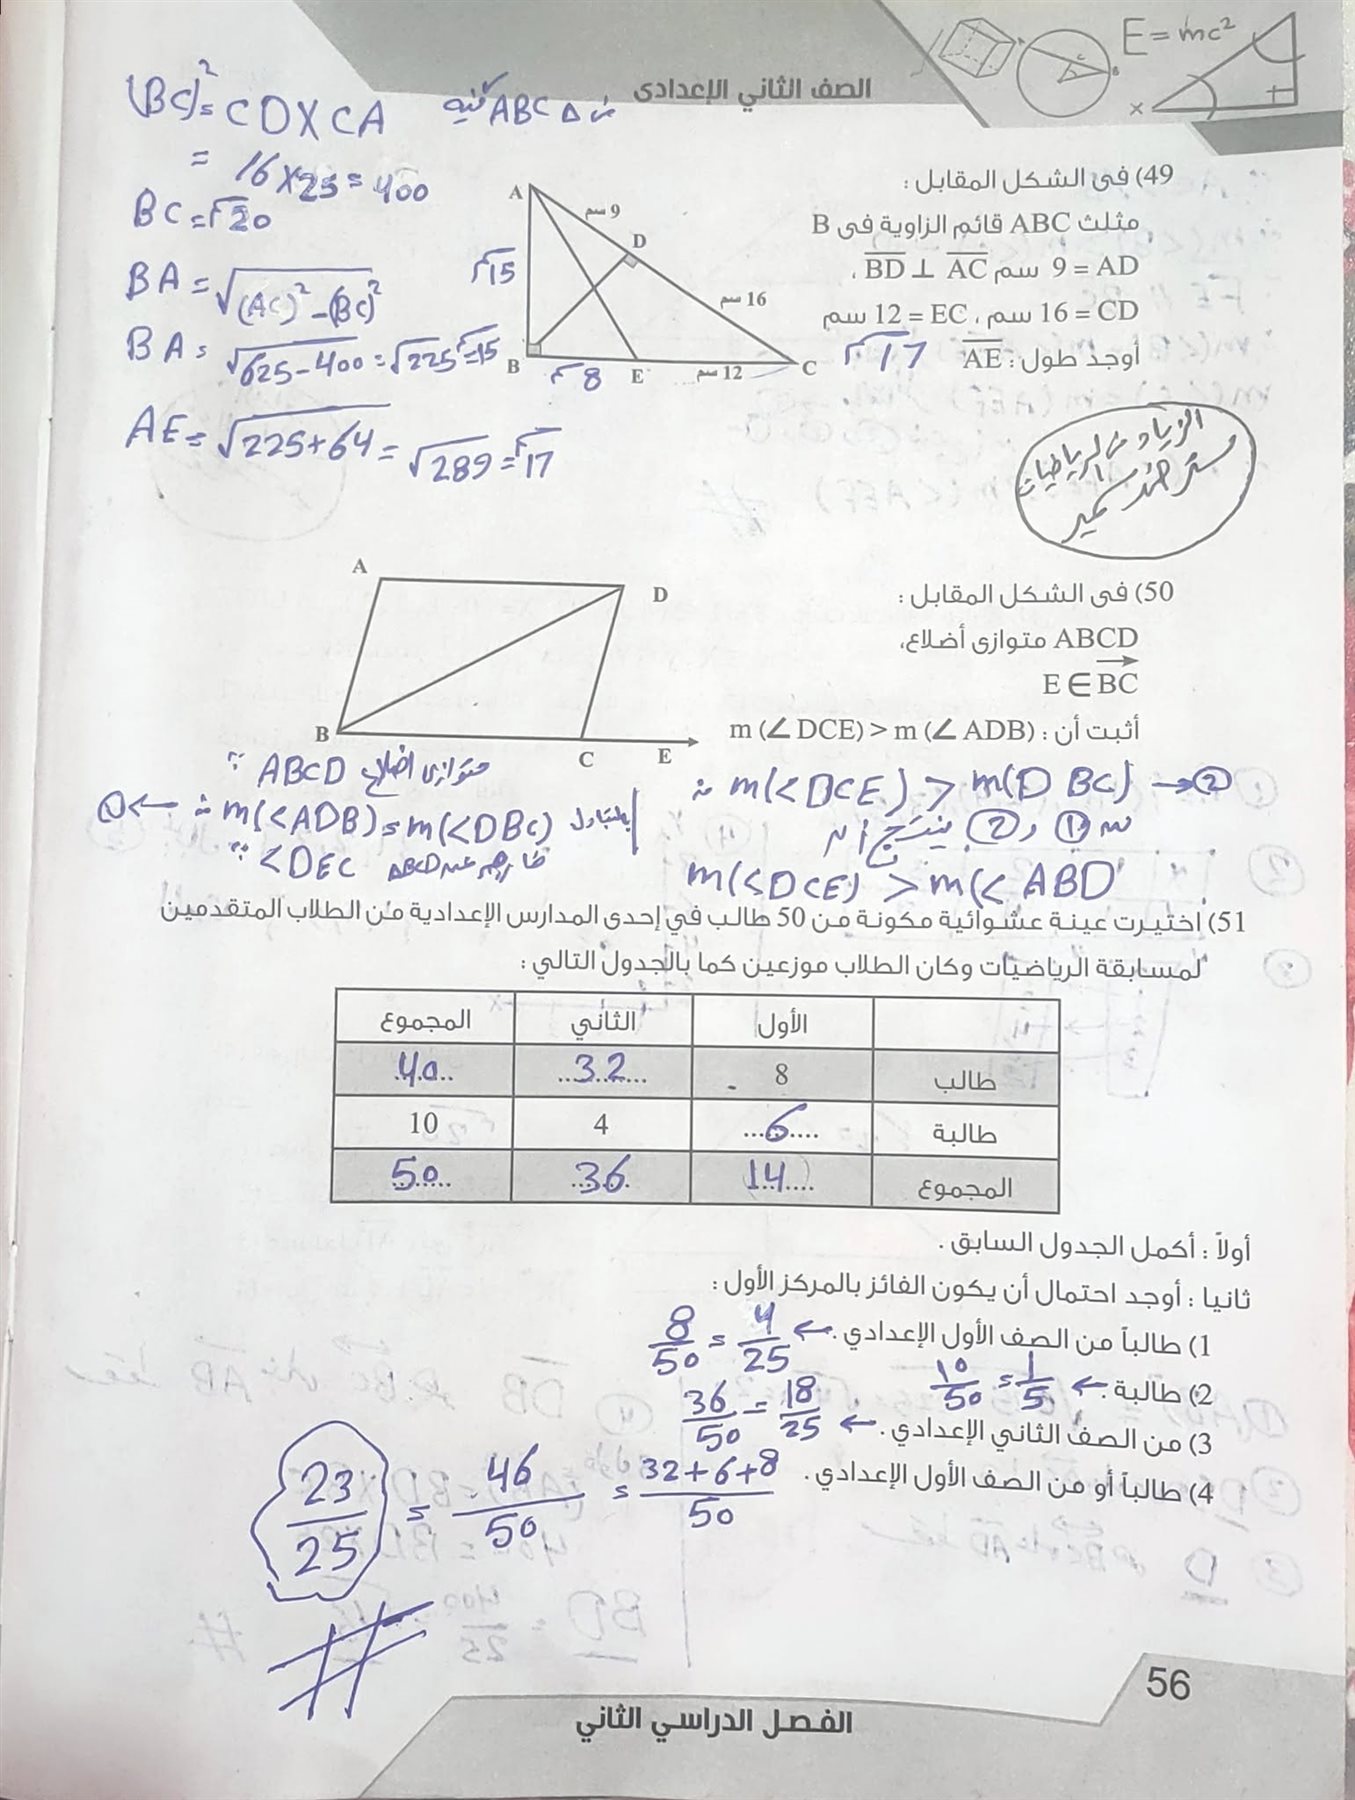 E = mc²
الصف الثاني الإعدادى
(BC)² = CD X CA
= 16 X 25 = 400
BC = 20
BA = √(AC)² - (BC)²
BA = √625 - 400 = √225 = 15
AE = √225 + 64 = √289 = 17
49) فى الشكل المقابل :
مثلث ABC قائم الزاوية فى B
AD = 9 سم BD ⊥ AC ،
CD = 16 سم ، EC = 12 سم
أوجد طول : AE 17
A
9 سم
D
15
16 سم
B
8
E
12 سم
C
50) فى الشكل المقابل :
ABCD متوازى أضلاع،
E ∈ BC
أثبت أن : m (∠ DCE) > m (∠ ADB)
A
D
B
C
E
∵ ABCD متوازى اضلاع
∴ m(<ADB) = m(<DBC) بالتبادل ← ①
∵ <DEC
∴ m(<DCE) > m(D BC) → ②
من ① و ② ينتج أن
m(<DCE) > m(< ABD
51) اختيرت عينة عشوائية مكونة من 50 طالب في إحدى المدارس الإعدادية من الطلاب المتقدمين
لمسابقة الرياضيات وكان الطلاب موزعين كما بالجدول التالي :
الأول الثاني المجموع
طالب 8 32 40
طالبة 6 4 10
المجموع 14 36 50
أولاً : أكمل الجدول السابق .
ثانيا : أوجد احتمال أن يكون الفائز بالمركز الأول :
1) طالباً من الصف الأول الإعدادي . ← 8/50 = 4/25
2) طالبة . ← 10/50 = 1/5
3) من الصف الثاني الإعدادي . ← 36/50 = 18/25
4) طالباً أو من الصف الأول الإعدادي . 32+6+8/50 = 46/50 = 23/25
56
الفصل الدراسي الثاني